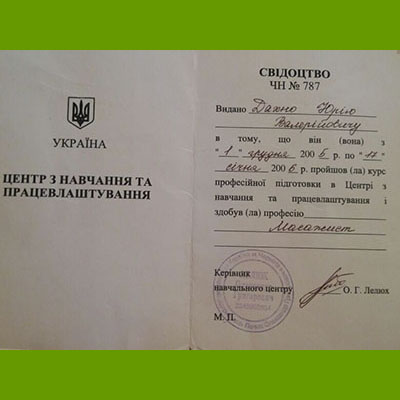 УКРАЇНА
ЦЕНТР З НАВЧАННЯ ТА
ПРАЦЕВЛАШТУВАННЯ
СВІДОЦТВО
ЧН № 787
Видано Дахно Юрію
Валерійовичу
в тому, що він (вона) з
"1" грудня 200 р. по "17"
січня 200 6 р. пройшов (ла) курс
професійної підготовки в Центрі з
навчання та працевлаштування і
здобув (ла) професію
Масажист
Керівник
навчального центру О. Г. Ледюх
М. П.